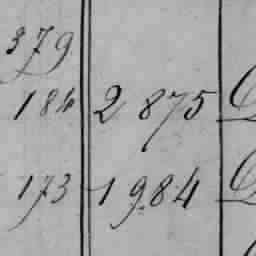 379
184 2 875
173 1 984